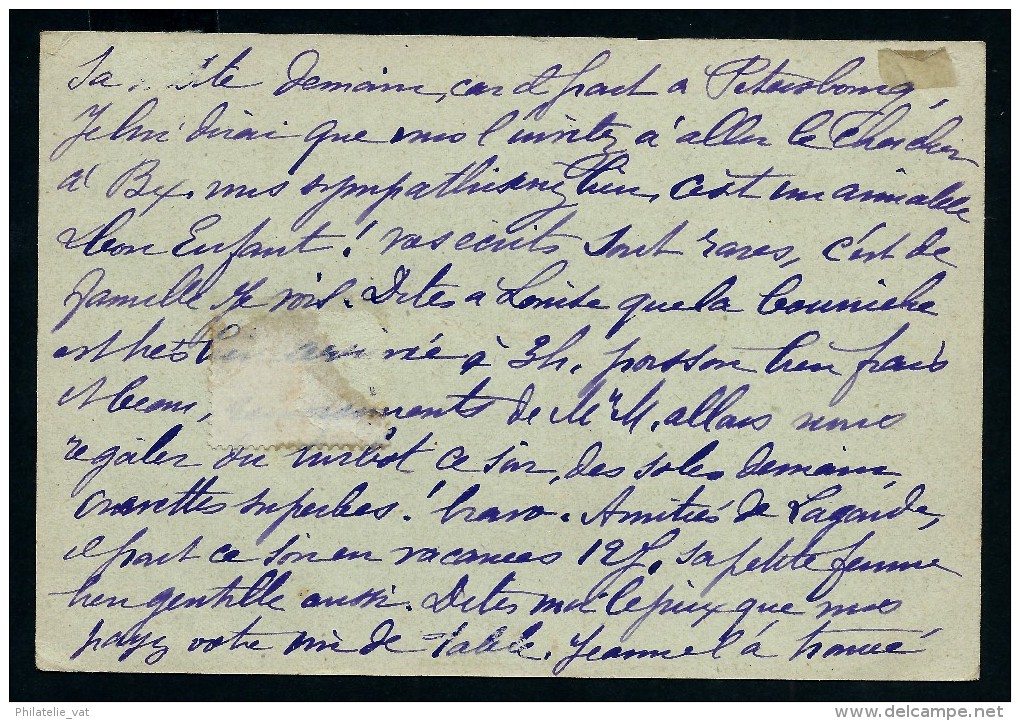 Sa demain, car il part à Petersbourg,
Je lui dirai que vous l'invitez à aller le chercher
à Bex, vous sympathiserez bien, c'est un aimable
bon Enfant! vos écrits sont rares, c'est de
famille je vois. Dites à Louise que la bourriche
est très bien arrivée à 3h. poisson bien frais
et beau, de Mr M. allons nous
régaler du turbot ce soir, des soles demain,
crevettes superbes! bravo. Amitiés de Lagarde,
il part ce soir en vacances 12 j. sa petite femme
bien gentille aussi. Dites moi le prix que vous
payez votre vin de table. Jeanne l'a trouvé
Philatelie_vat